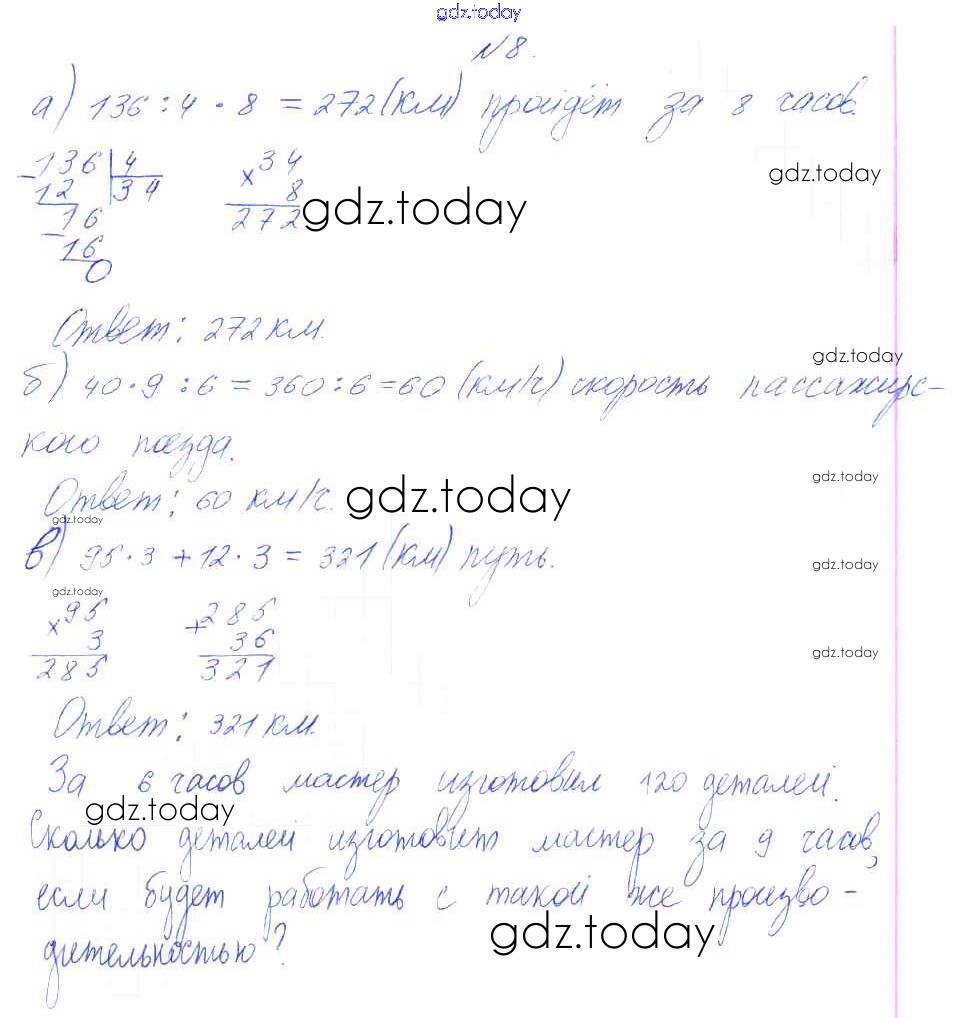 gdz.today
№8.
а) 136 : 4 · 8 = 272 (км) пройдёт за 8 часов.
gdz.today
- 136 | 4
12 | 34
- 16
16
0
× 34
8
272
gdz.today
Ответ: 272 км.
gdz.today
б) 40 · 9 : 6 = 360 : 6 = 60 (км/ч) скорость пассажирс-
кого поезда.
gdz.today
Ответ: 60 км/ч.
gdz.today
gdz.today
в) 95 · 3 + 12 · 3 = 321 (км) путь.
gdz.today
gdz.today
× 95
3
285
+ 285
36
321
gdz.today
Ответ: 321 км.
За 6 часов мастер изготовил 120 деталей.
gdz.today
Сколько деталей изготовит мастер за 9 часов,
если будет работать с такой же произво-
gdz.today
дительностью?